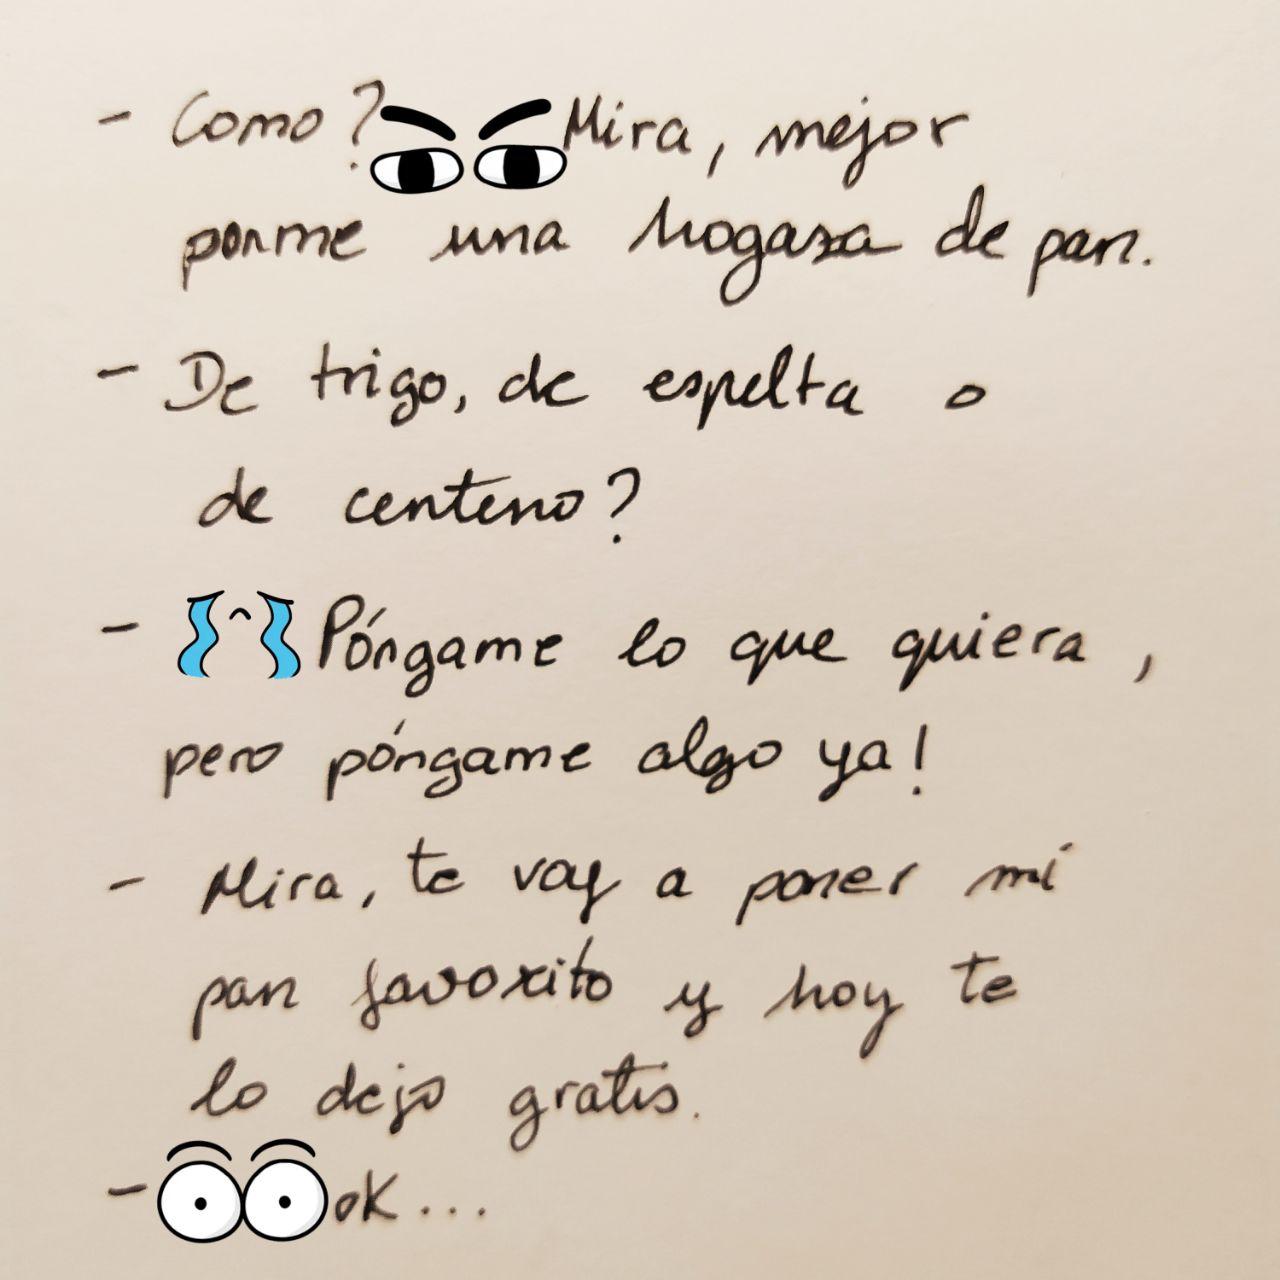 - Como? Mira, mejor
ponme una hogasa de pan.
- De trigo, de espelta o
de centeno?
- Póngame lo que quiera,
pero póngame algo ya!
- Mira, te voy a poner mí
pan favorito y hoy te
lo dejo gratis.
- ok...